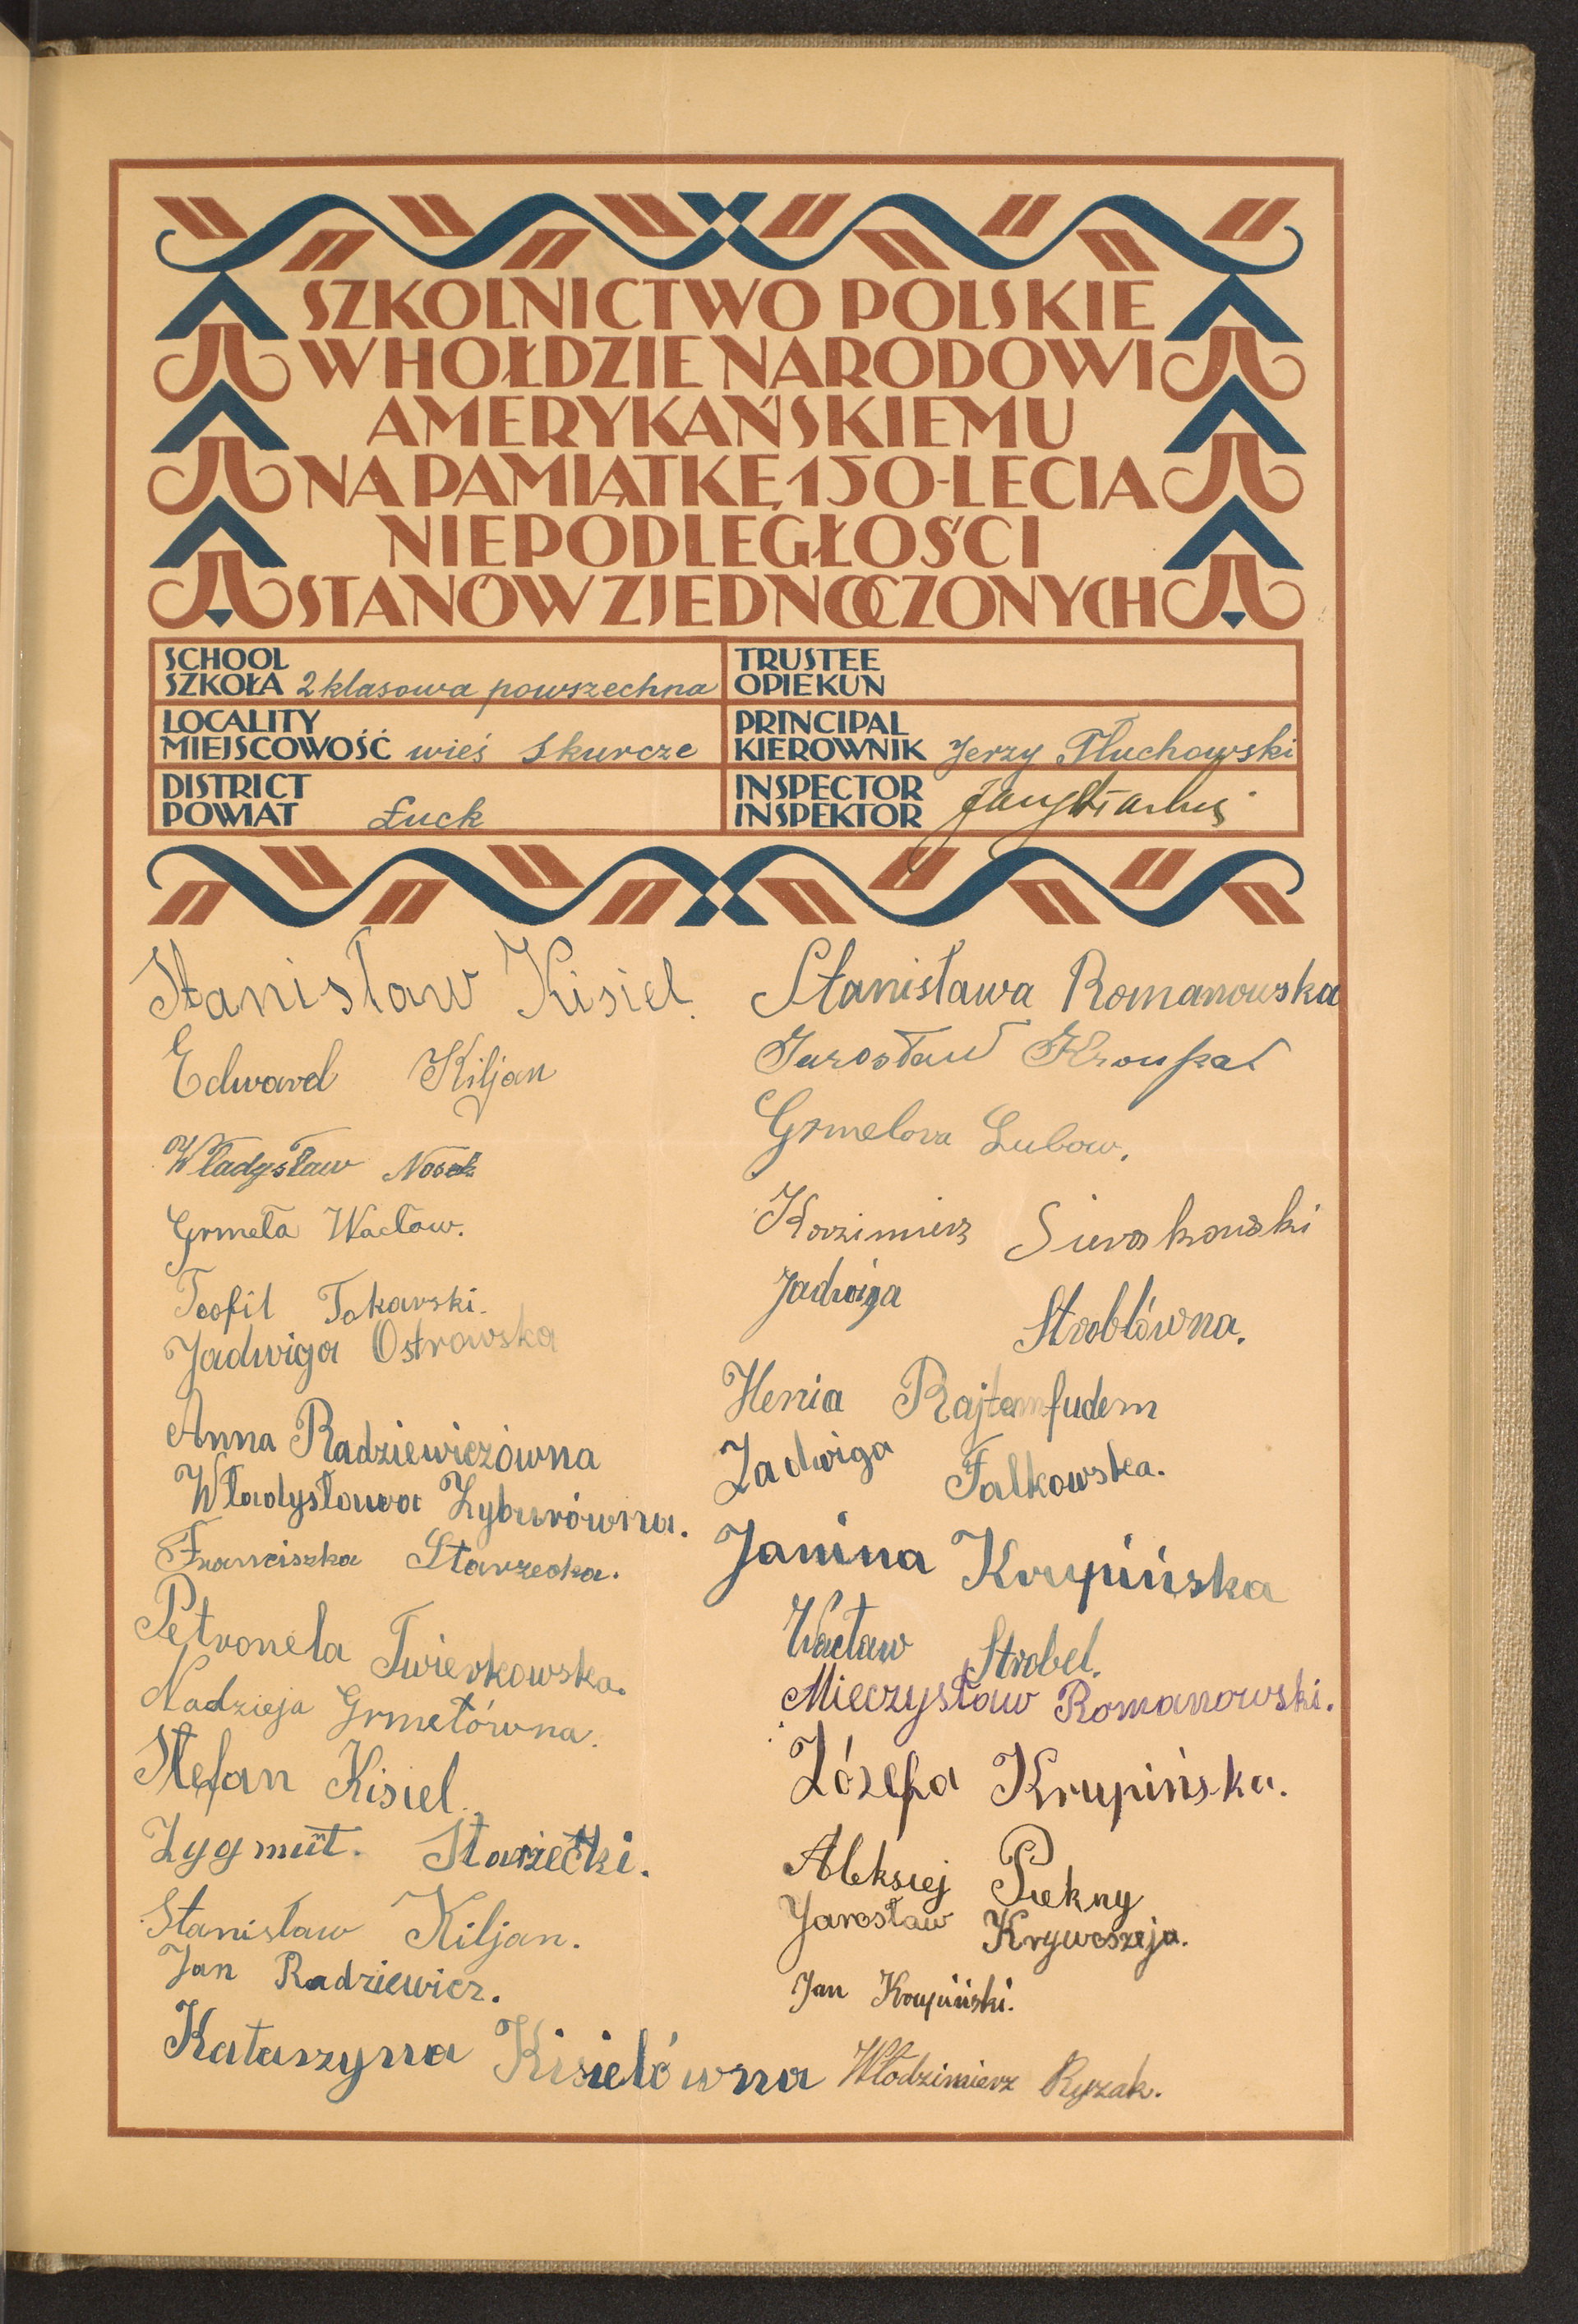 SZKOLNICTWO POLSKIE
W HOŁDZIE NARODOWI
AMERYKAŃSKIEMU
NA PAMIĄTKĘ 150-LECIA
NIEPODLEGŁOŚCI
STANÓW ZJEDNOCZONYCH
SCHOOL
SZKOŁA 2 klasowa powszechna
TRUSTEE
OPIEKUN
LOCALITY
MIEJSCOWOŚĆ wieś Skurcze
PRINCIPAL
KIEROWNIK Jerzy Tłuchowski
DISTRICT
POWIAT Łuck
INSPECTOR
INSPEKTOR
Stanisław Kisiel.
Edward Kiljan
Władysław Nosek
Grmela Wacław.
Teofil Tokarski.
Jadwiga Ostrowska
Anna Radziewiczówna
Władysława Zyburówna.
Franciszka Starzecka.
Petronela Twierkowska.
Nadzieja Grmelówna.
Stefan Kisiel.
Zygmut. Starzecki.
Stanisław Kiljan.
Jan Radziewicz.
Katarzyna Kisielówna
Stanisława Romanowska
Jarosław Kroupa
Grmelova Lubow.
Kazimierz Sieraskowski
Jadwiga Stroblówna.
Henia Rajtemfudem
Jadwiga Falkowska.
Janina Krupińska
Wacław Strobel.
Mieczysław Romanowski.
Józefa Krupińska.
Aleksiej Piekny
Jarosław Krywoszeja.
Jan Krupiński.
Włodzimierz Ryzak.